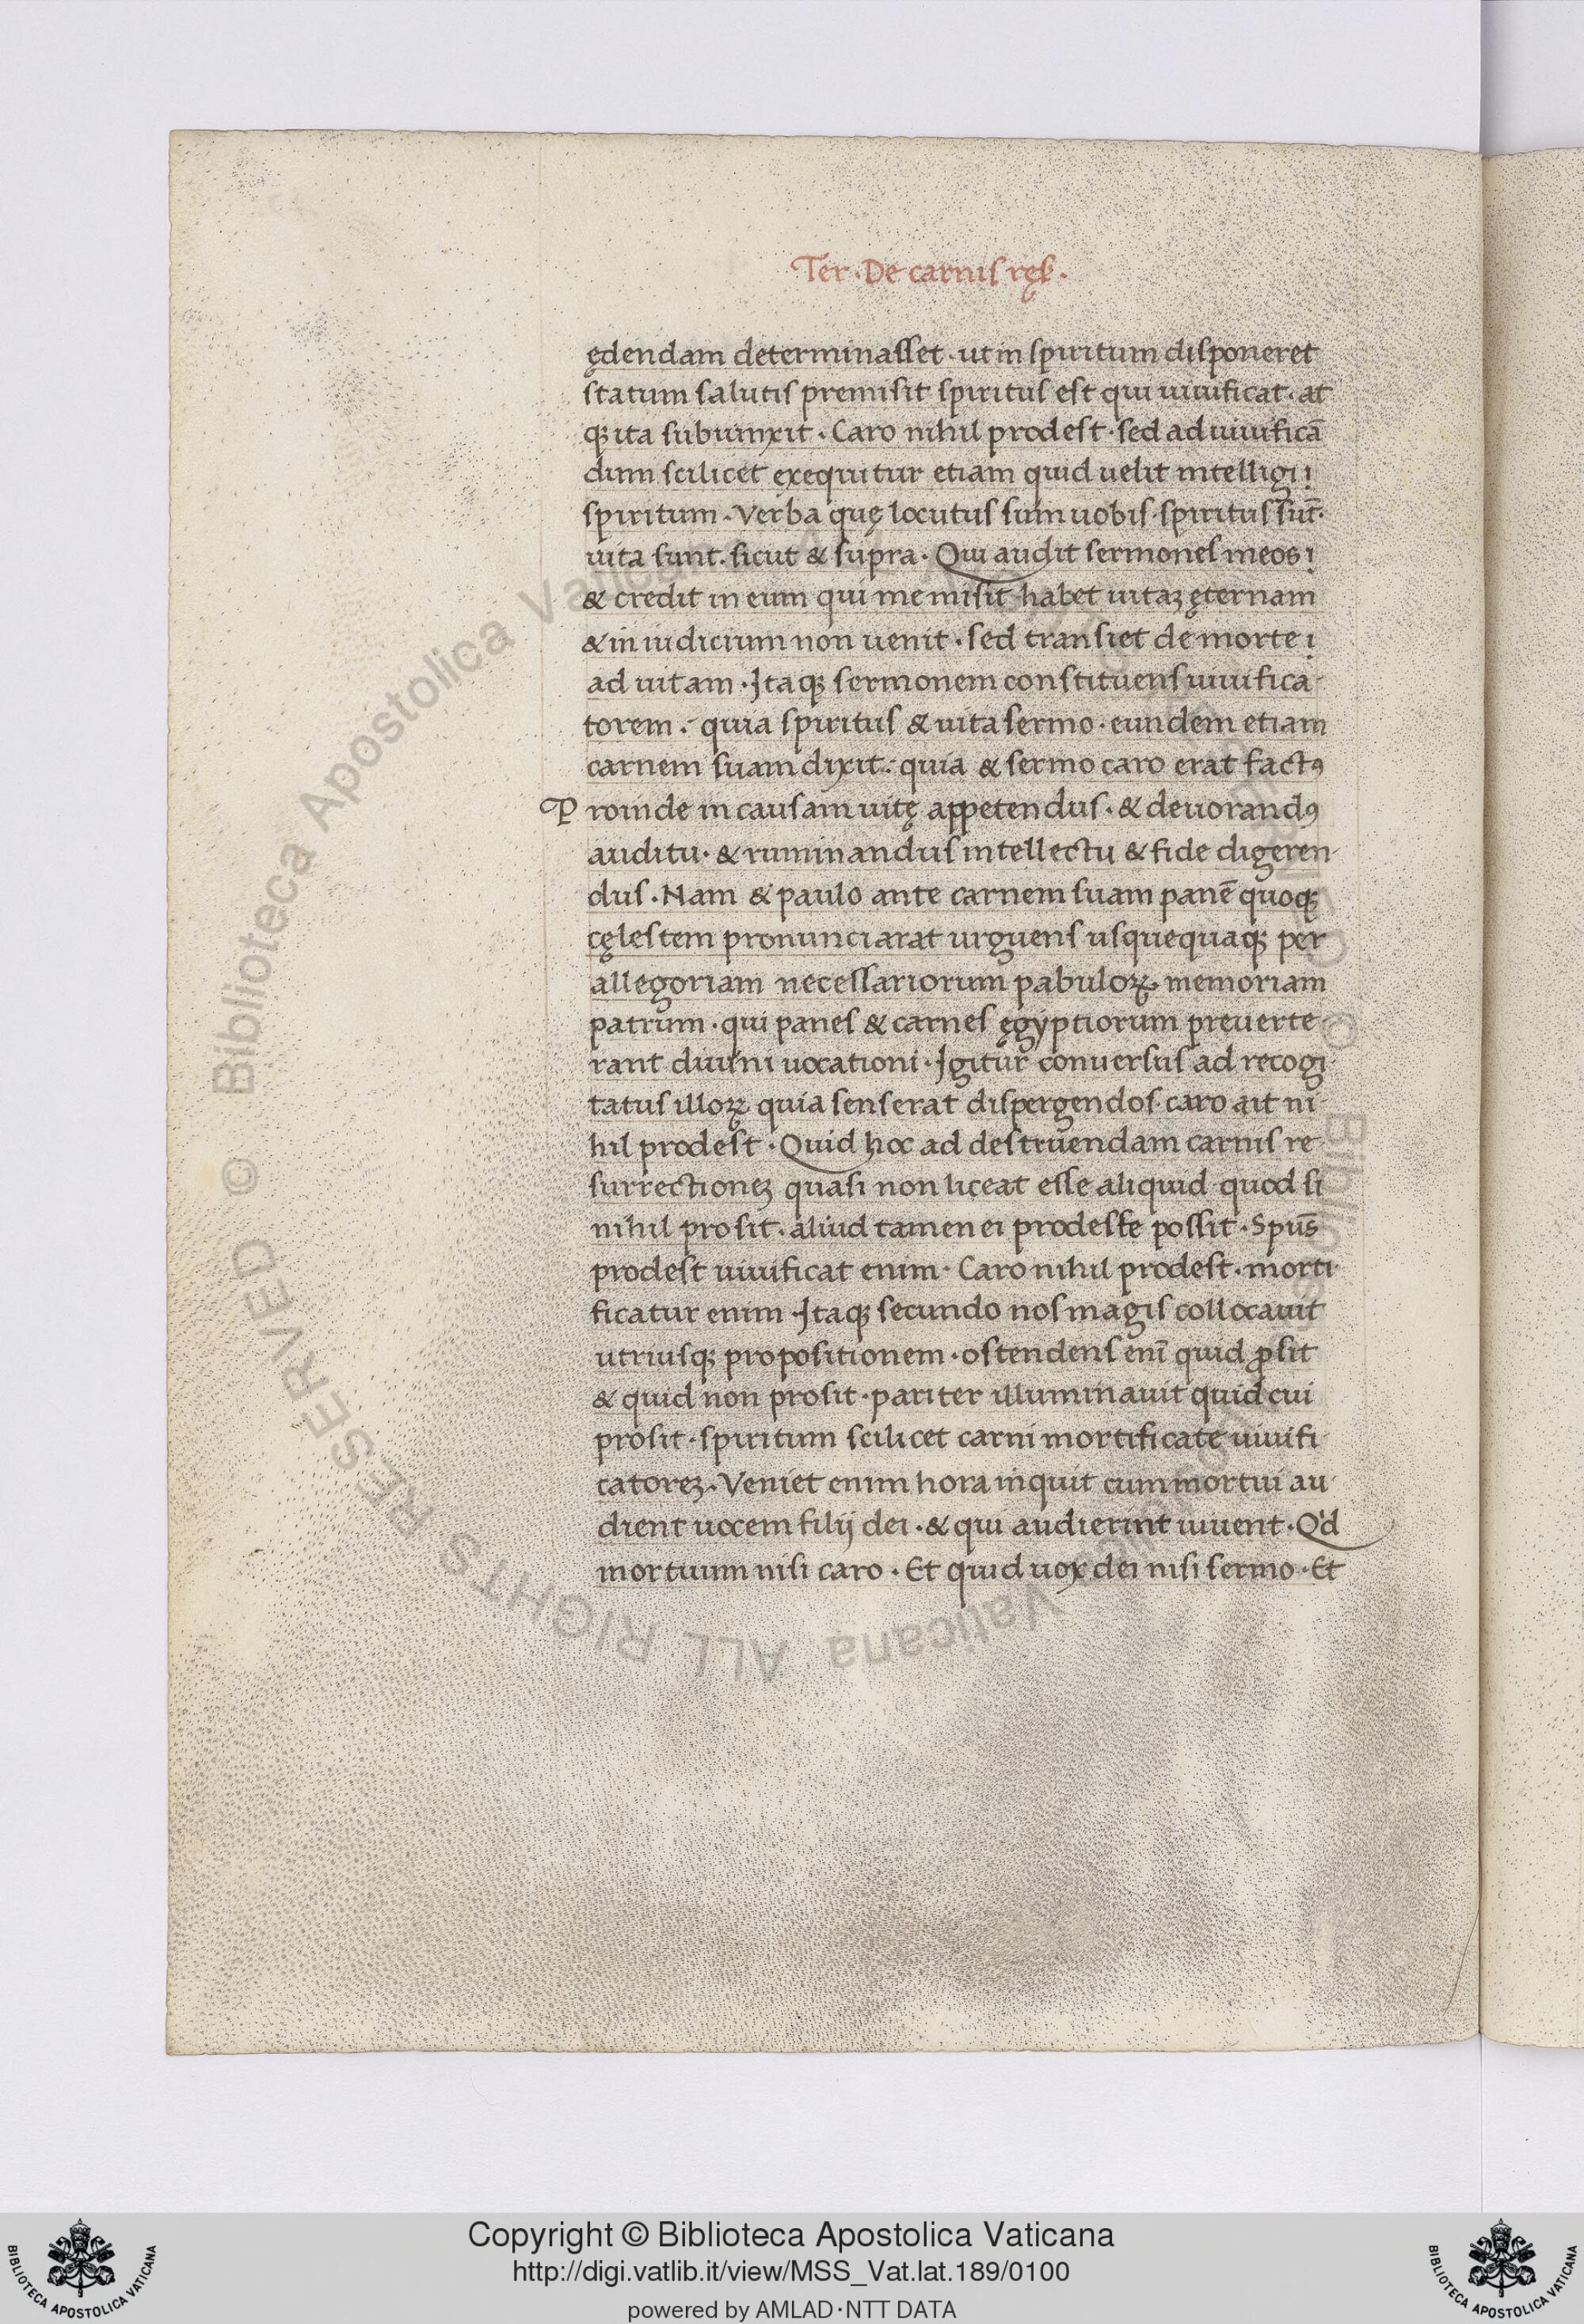 Ter · De carnis ręſ ·
ędendam determinasset · ut in spiritum disponeret
statum salutis premisit spiritus est qui uiuificat · at
q; ita subiunxit · Caro nihil prodest · sed ad uiuificā
dum scilicet exequitur etiam quid uelit intelligi ;
spiritum · Verba quę locutus sum uobis spiritus sūt ·
uita sunt · sicut & supra · Qui audit sermones meos ;
& credit in eum qui me misit habet uitaz ęternam
& in iudicium non uenit · sed transiet de morte ;
ad uitam · Itaq; sermonem constituens uiuifica
torem :· quia spiritus & uita sermo · eundem etiam
carnem suam dixit :· quia & sermo caro erat factꝯ
Proinde in causam uitę appetendus · & deuorandꝯ
auditu · & ruminandus intellectu & fide digeren
dus · Nam & paulo ante carnem suam panē quoq;
cęlestem pronunciarat urguens usquequaq; per
allegoriam necessariorum pabuloꝝ memoriam
patrum · qui panes & carnes ęgyptiorum preuerte
rant diuini uocationi · Igitur conuersus ad recogi
tatus illoꝝ quia senserat dispergendos caro ait ni
hil prodest · Quid hoc ad destruendam carnis re
surrectionez quasi non liceat esse aliquid quod si
nihil prosit · aliud tamen ei prodesse possit · Spūs
prodest uiuificat enim · Caro nihil prodest · morti
ficatur enim · Itaq; secundo nos magis collocauit
utriusq; propositionem · ostendens enī quid ꝓsit
& quid non prosit · pariter illuminauit quid cui
prosit · spiritum scilicet carni mortificate uiuifi
catorez · Veniet enim hora inquit cum mortui au
dient uocem filij dei · & qui audierint uiuent · Q'd
mortuum nisi caro · Et quid uox dei nisi sermo · Et
© Biblioteca Apostolica Vaticana ALL RIGHTS RESERVED
Copyright © Biblioteca Apostolica Vaticana
http://digi.vatlib.it/view/MSS_Vat.lat.189/0100
powered by AMLAD·NTT DATA
BIBLIOTECA APOSTOLICA VATICANA
BIBLIOTECA APOSTOLICA VATICANA